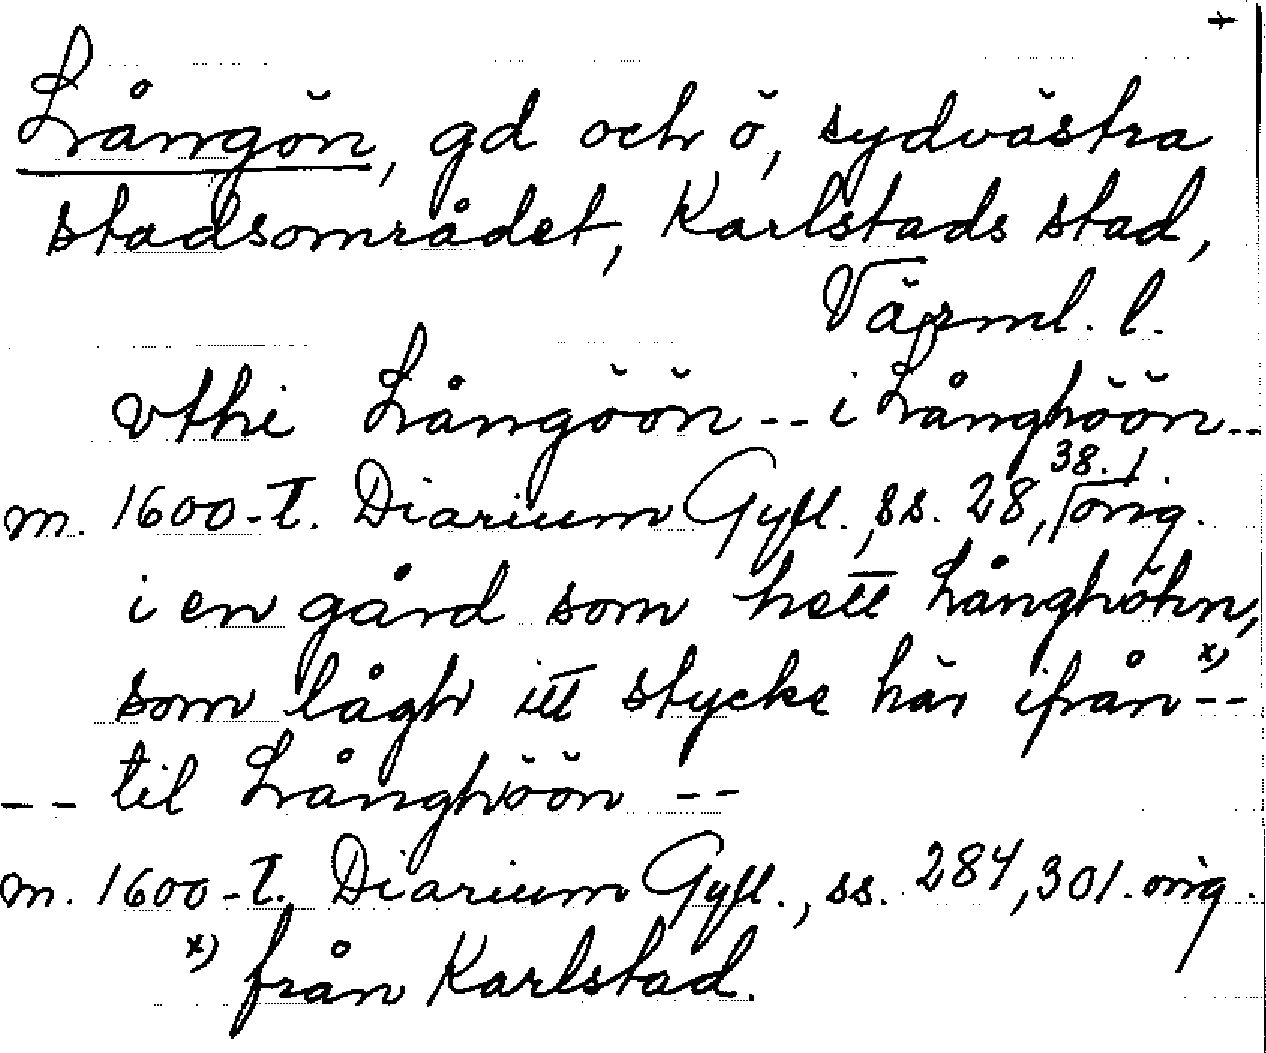 +
Långön, gd och ö, sydvästra
stadsområdet, Karlstads stad,
Värml. l.
vthi Långöön -- i Långhöön --
38.
m. 1600-t. Diarium Gyll., ss. 28, orig.
i en gård som hett Långhöhn,
som lågh itt stycke här ifrån x) --
-- til Långhöön --
m. 1600-t. Diarium Gyll., ss. 284, 301. orig.
x) från Karlstad.